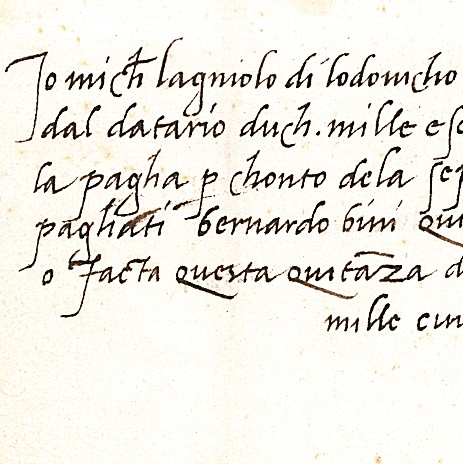 Io mich lagniolo di lodovicho
dal datario duch. mille e
la pagha p chonto dela
paghati bernardo bini
o facta questa quitaza
mille